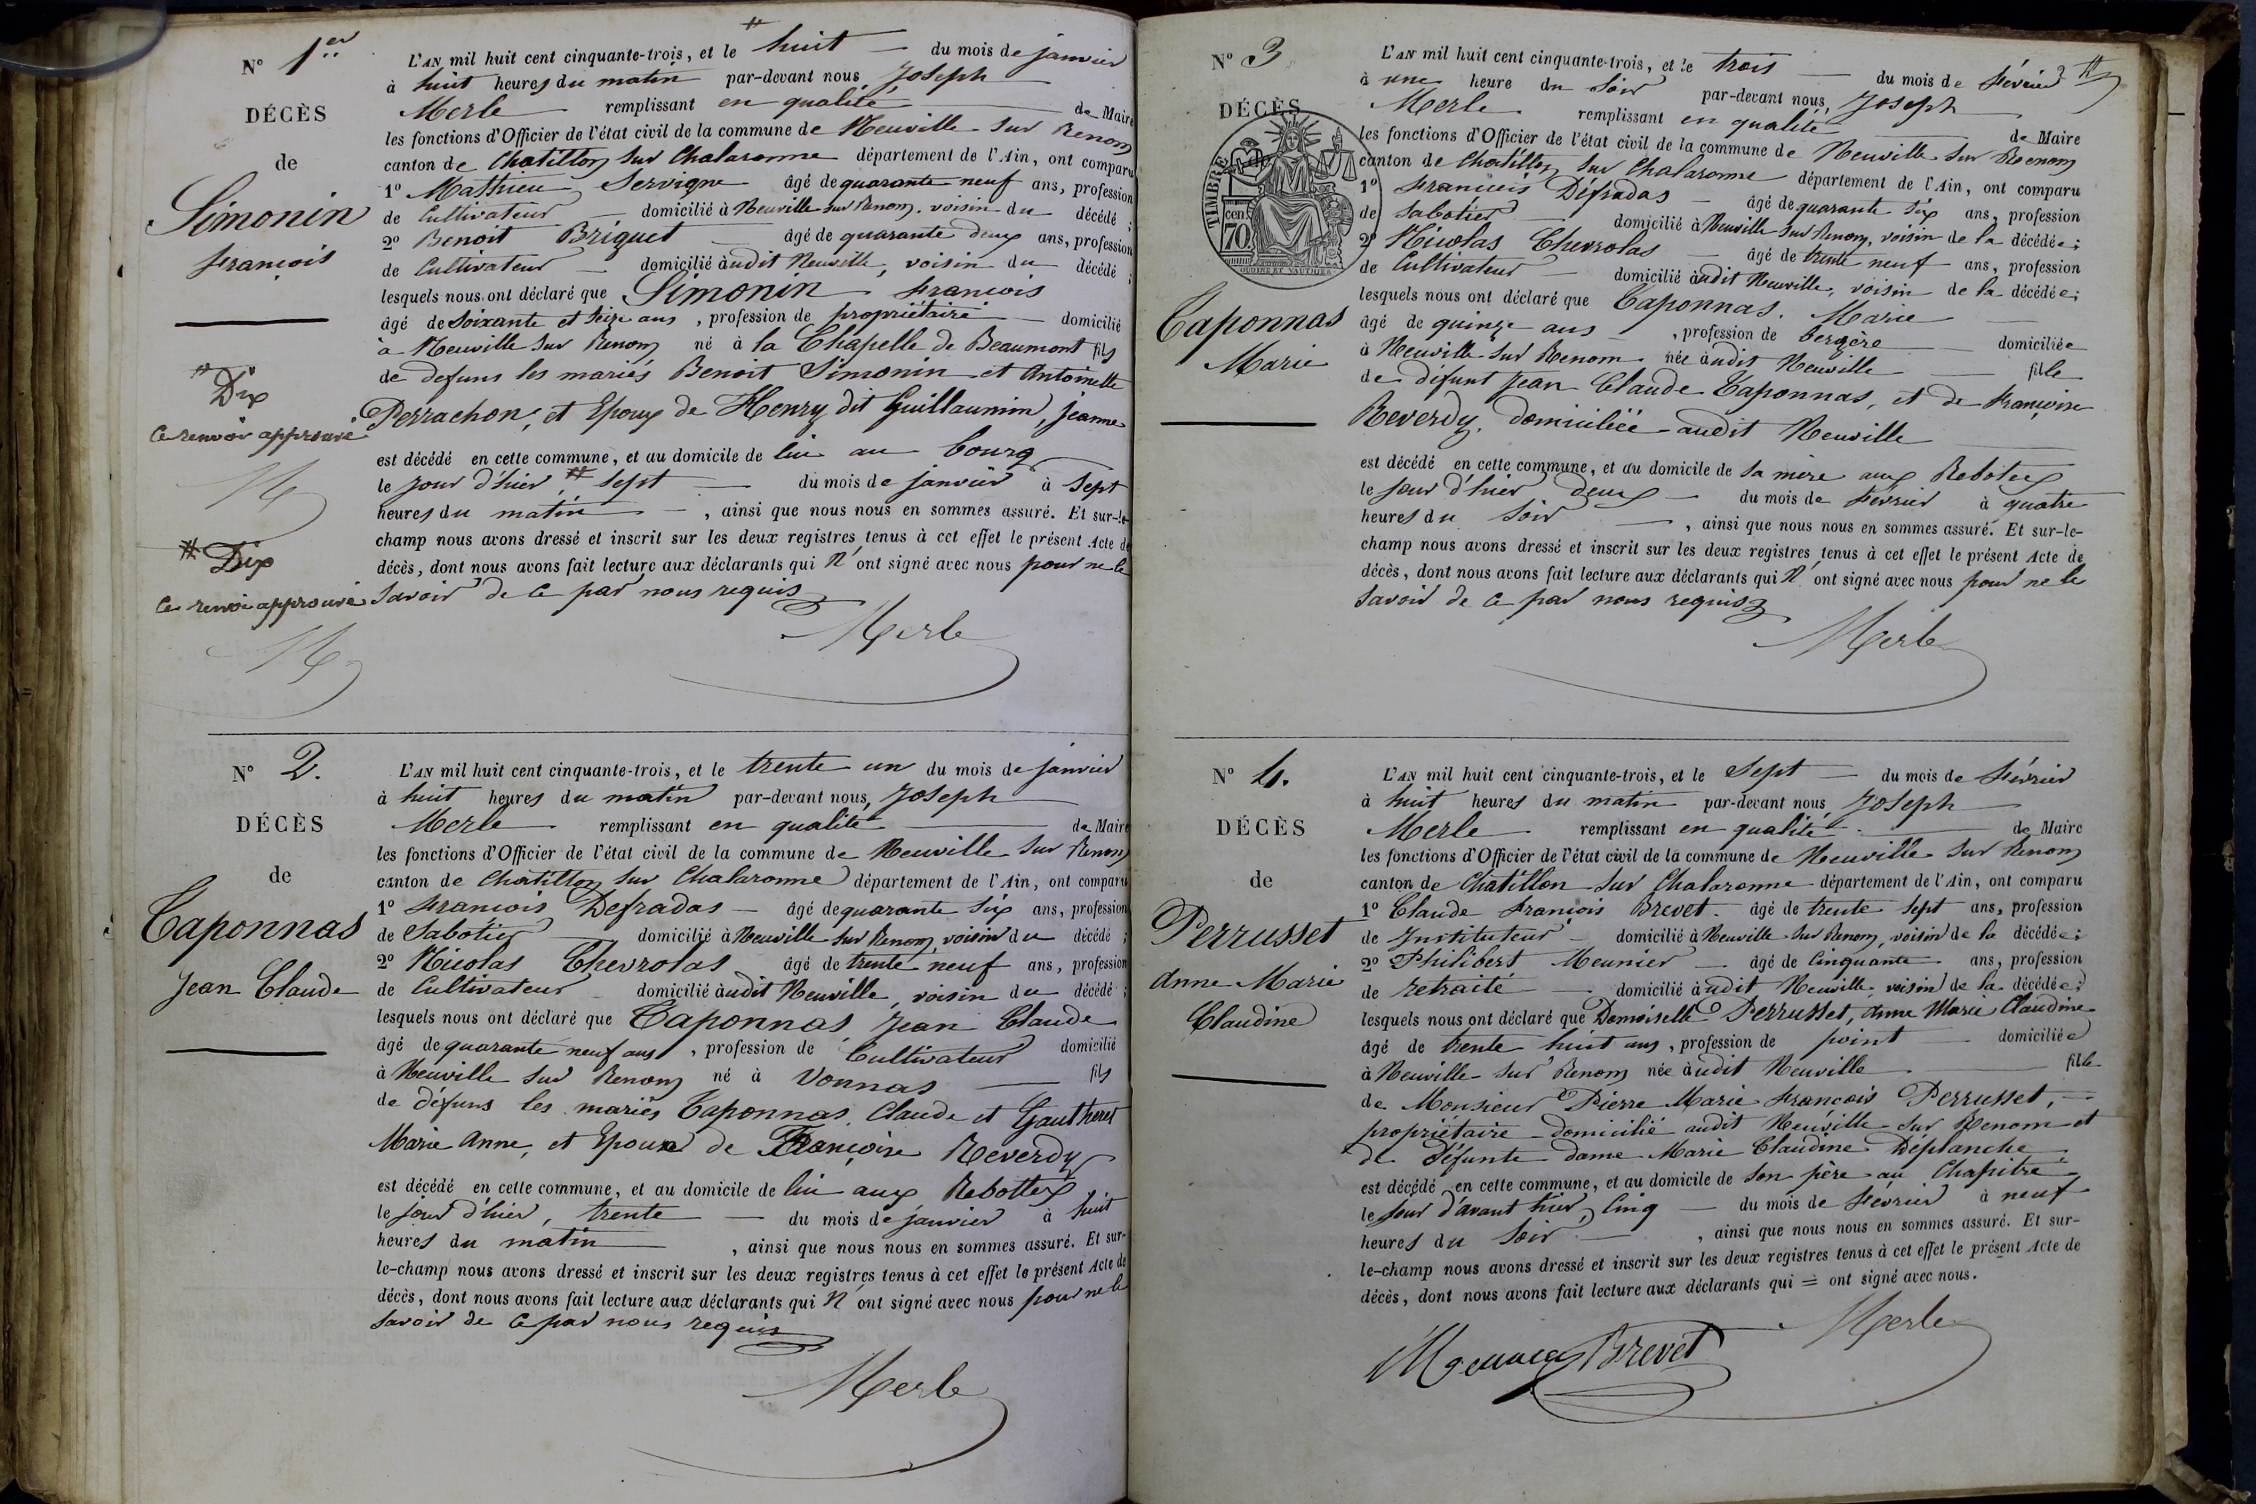 N° 1er
DÉCÈS
de
Simonin
François
#
Dix
Ce renvoi approuvé
M
# Dix
Ce renvoi approuvé
M
#
L'AN mil huit cent cinquante-trois, et le huit — du mois de janvier
à huit heures du matin par-devant nous Joseph
Merle remplissant en qualité de Maire
les fonctions d'Officier de l'état civil de la commune de Neuville sur Renom
canton de Chatillon sur Chalaronne département de l'Ain, ont comparu
1° Mathieu Servigne âgé de quarante neuf ans, profession
de Cultivateur — domicilié à Neuville sur Renom, voisin du décédé ;
2° Benoit Briquet âgé de quarante deux ans, profession
de Cultivateur — domicilié audit Neuville, voisin du décédé ;
lesquels nous ont déclaré que Simonin François
âgé de soixante et seize ans, profession de propriétaire — domicilié
à Neuville sur Renom né à la Chapelle de Beaumont fils
de defuns les mariés Benoit Simonin et Antoinette
Perrachon, et Epoux de Henry dit Guillaumin, Jeanne
est décédé en cette commune, et au domicile de lui au bourg
le jour d'hier # sept — du mois de janvier à sept
heures du matin —, ainsi que nous nous en sommes assuré. Et sur-le-
champ nous avons dressé et inscrit sur les deux registres tenus à cet effet le présent Acte de
décès, dont nous avons fait lecture aux déclarants qui n'ont signé avec nous pour ne le
savoir de ce par nous requis
Merle
N° 2.
DÉCÈS
de
Taponnas
Jean Claude
L'AN mil huit cent cinquante-trois, et le trente un du mois de janvier
à huit heures du matin par-devant nous, Joseph
Merle remplissant en qualité de Maire
les fonctions d'Officier de l'état civil de la commune de Neuville sur Renom
canton de Chatillon sur Chalaronne département de l'Ain, ont comparu
1° François Defradas — âgé de quarante six ans, profession
de Sabotier domicilié à Neuville sur Renom, voisin du décédé ;
2° Nicolas Chevrolas âgé de trente neuf ans, profession
de Cultivateur domicilié audit Neuville, voisin du décédé ;
lesquels nous ont déclaré que Taponnas Jean Claude
âgé de quarante neuf ans, profession de Cultivateur domicilié
à Neuville sur Renom né à Vonnas — fils
de défuns les mariés Taponnas, Claude et Gautheret
Marie Anne, et Epoux de Françoise Reverdy
est décédé en cette commune, et au domicile de lui aux Rebottex
le jour d'hier, trente — du mois de janvier à huit
heures du matin, ainsi que nous nous en sommes assuré. Et sur-
le-champ nous avons dressé et inscrit sur les deux registres tenus à cet effet le présent Acte de
décès, dont nous avons fait lecture aux déclarants qui n'ont signé avec nous pour ne le
savoir de ce par nous requis
Merle
N° 3
DÉCÈS
TIMBRE
cen
70.
Taponnas
Marie
L'AN mil huit cent cinquante-trois, et le trois — du mois de Février
à une heure du soir par-devant nous, Joseph
Merle remplissant en qualité de Maire
les fonctions d'Officier de l'état civil de la commune de Neuville sur Renom
canton de Chatillon sur Chalaronne département de l'Ain, ont comparu
1° François Défradas — âgé de quarante six ans, profession
de sabotier domicilié à Neuville sur Renom, voisin de la décédée ;
2° Nicolas Chevrolas — âgé de trente neuf ans, profession
de Cultivateur — domicilié audit Neuville, voisin de la décédée ;
lesquels nous ont déclaré que Taponnas. Marie
âgé de quinze ans, profession de bergère domiciliée
à Neuville sur Renom née audit Neuville — fille
de défunt Jean Claude Taponnas, et de Françoise
Reverdy, domiciliée audit Neuville
est décédé en cette commune, et au domicile de sa mère aux Rebotex
le jour d'hier deux — du mois de Février à quatre
heures du soir —, ainsi que nous nous en sommes assuré. Et sur-le-
champ nous avons dressé et inscrit sur les deux registres tenus à cet effet le présent Acte de
décès, dont nous avons fait lecture aux déclarants qui n'ont signé avec nous pour ne le
savoir de ce par nous requis
Merle
N° 4.
DÉCÈS
de
Perrusset
Anne Marie
Claudine
L'AN mil huit cent cinquante-trois, et le Sept — du mois de Février
à huit heures du matin par-devant nous Joseph
Merle remplissant en qualité de Maire
les fonctions d'Officier de l'état civil de la commune de Neuville sur Renom
canton de Chatillon sur Chalaronne département de l'Ain, ont comparu
1° Claude François Brevet. âgé de trente sept ans, profession
de Instituteur — domicilié à Neuville sur Renom, voisin de la décédée ;
2° Philibert Meunier — âgé de Cinquante ans, profession
de retraité — domicilié audit Neuville voisin de la décédée ;
lesquels nous ont déclaré que Demoiselle Perrusset, Anne Marie Claudine
âgé de trente huit ans, profession de point — domiciliée
à Neuville sur Renom née audit Neuville — fille
de Monsieur Pierre Marie François Perrusset,
propriétaire domicilié audit Neuville sur Renom et
de Défunte dame Marie Claudine Déplanche
est décédé en cette commune, et au domicile de son père au Chapitre
le jour d'avant hier, Cinq — du mois de Février à neuf
heures du soir —, ainsi que nous nous en sommes assuré. Et sur-
le-champ nous avons dressé et inscrit sur les deux registres tenus à cet effet le présent Acte de
décès, dont nous avons fait lecture aux déclarants qui = ont signé avec nous.
Merle
Brevet